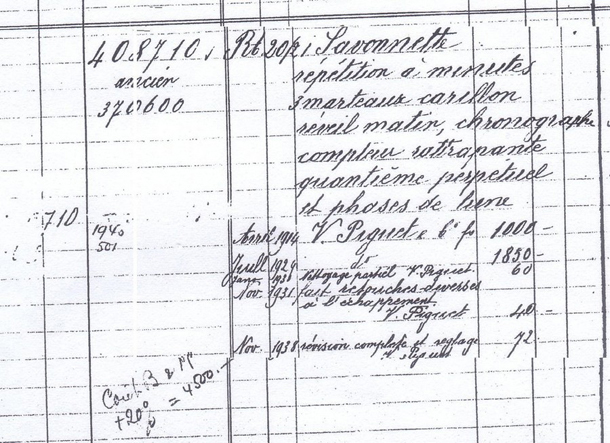 408710. Rt 20/2 i Savonnette
ancien répétition à minutes
3 marteaux carillon
réveil matin, chronographe
compteur rattrapante
quantième perpetuel
et phases de lune
710
Avril 1914 V. Piguet 1000 -
Juill 1929 1850 -
Janv. 1931 Nettoyage partiel V. Piguet 60
Nov. 1931 fait retouches diverses
à l'échappement
V. Piguet 40 -
Nov. 1938 révision complète et reglage 72 -
V Piguet
+20% = 4500.-